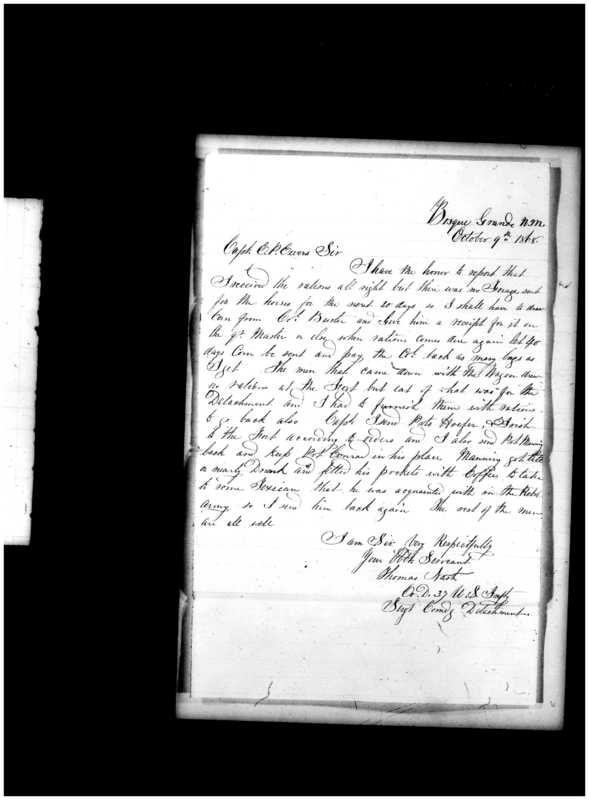 Bosque Grande N.M.
October 9th 1868.
Capt. E. P. Evans Sir
I have the honor to report that
I received the rations all right but there was no forage sent
for the horses for the next 20 days so I shall have to draw
Corn from Co. and give him a receipt for it on
the Qr Master or else when rations comes due again let 40
days Corn be sent and pay the Co. back as many bags as
I get The men that came down with the Wagon drew
no rations at the Fort but eat of what was for the
Detachment and I had to furnish them with rations
to go back also Capt I send Pvts Hooper &
to the Fort according to orders and I also send Pvt Manning
back and keep Pvt Conrad in his place Manning got
nearly Drunk and filled his pockets with Coffee to take
to some Mexican that he was acquainted with in the Rebel
army so I send him back again The rest of the men
are all well
I am Sir Very Respectfully
Your Obt Servant
Thomas Nash
Co. D. 37 U.S. Infty
Sergt Comdg Detachment